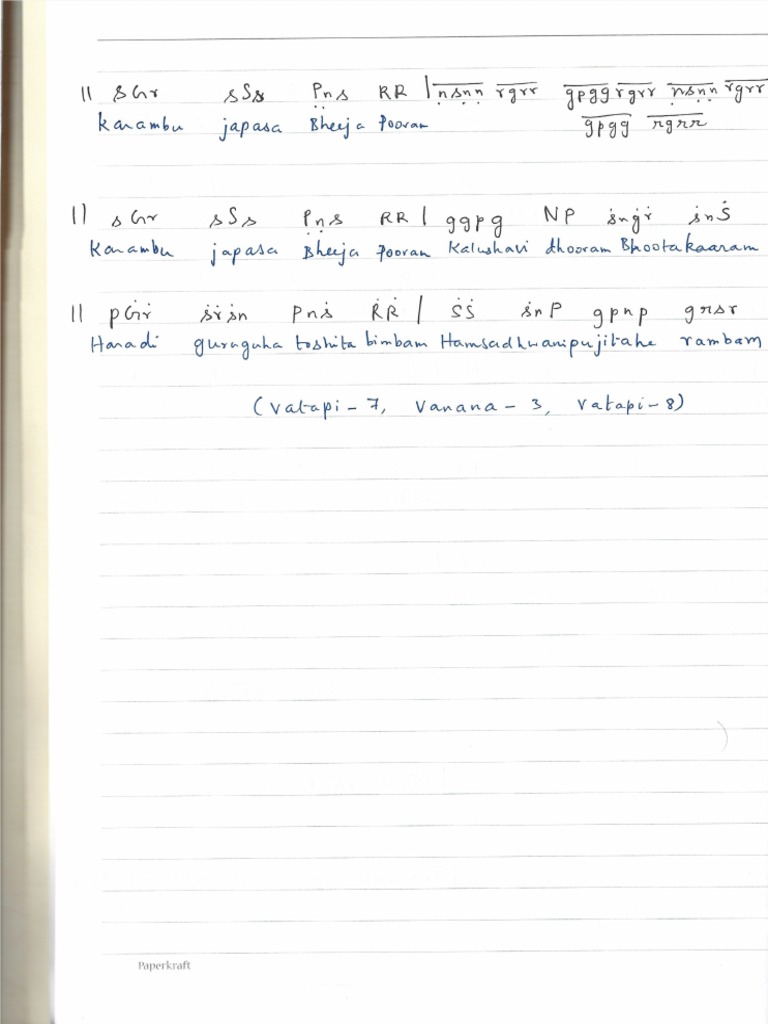 || s Gr sSs Pns RR | nsnn rgrr gpgg rgrr nsnn rgrr
Karambu japasa Bheeja Pooram gpgg rgrr
|| s Gr sSs Pns RR | ggpg NP ṡnġṙ ṡnṠ
Karambu japasa Bheeja Pooram Kalushavi dhooram Bhootakaaram
|| pĠṙ ṡṙṡn Pnṡ ṘṘ | ṠṠ ṡnP gpnp grsr
Haradi guruguha toshita bimbam Hamsadhwanipujitahe rambam
(Vatapi - 7, Varana - 3, Vatapi - 8)
Paperkraft